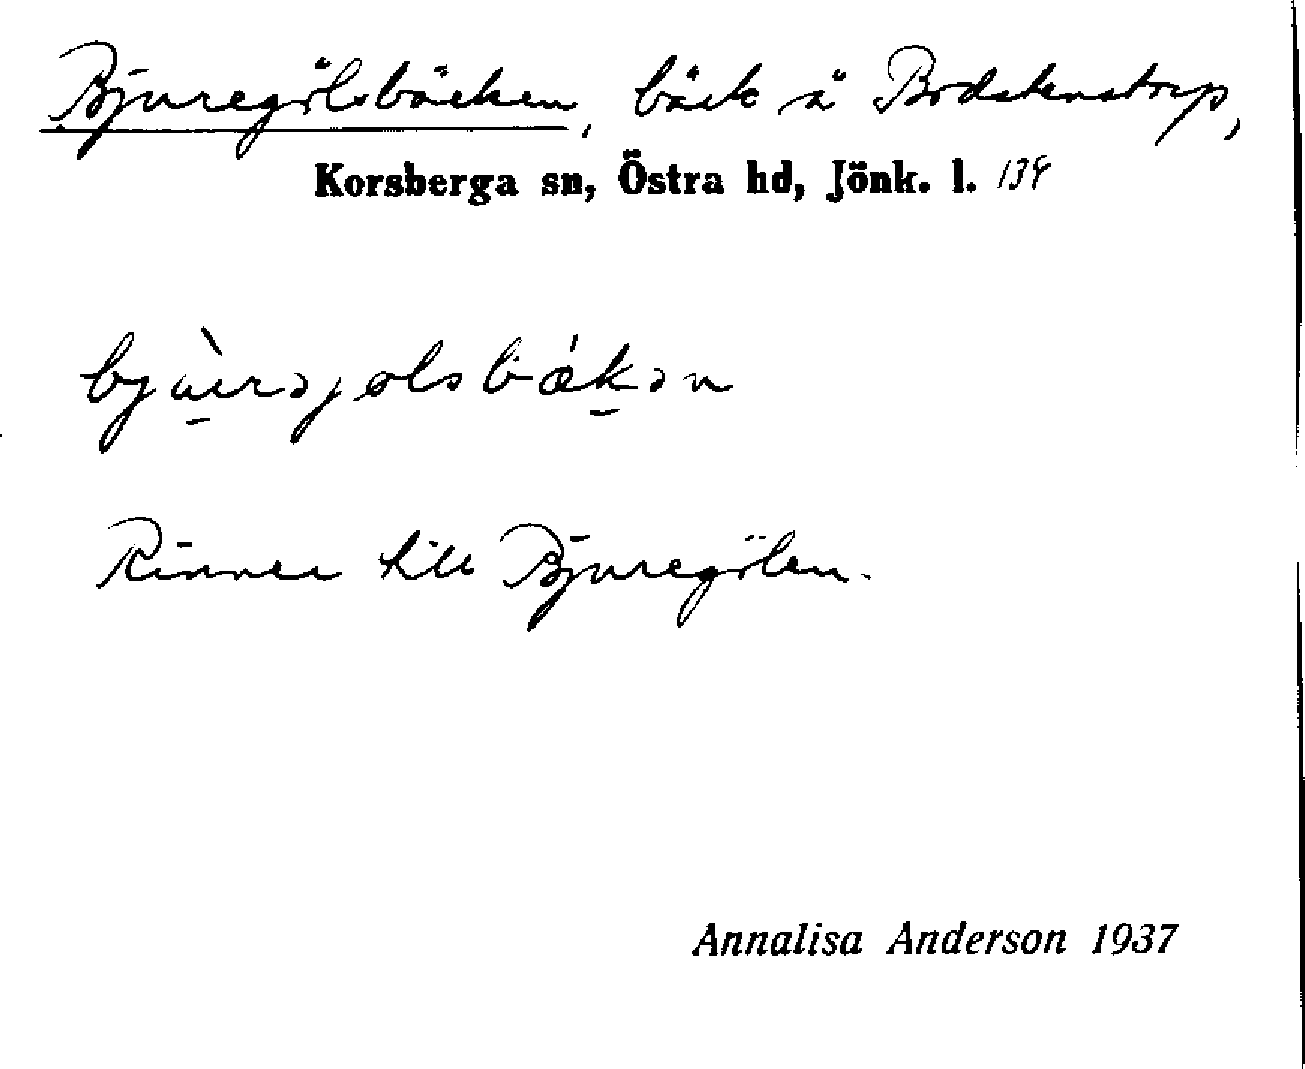 Bjuregölsbäcken, bäck å Bodatenstorp,
Korsberga sn, Östra hd, Jönk. l. 134
Rinner till Bjuregölen.
Annalisa Anderson 1937